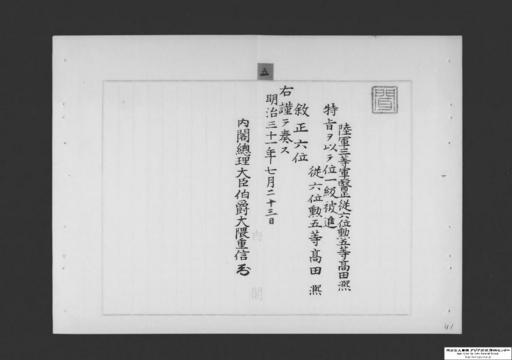 陸軍三等軍醫正従六位勲五等髙田熈
特旨ヲ以テ位一級被進
従六位勲五等髙田熈
敘正六位
右謹テ奏ス
明治三十一年七月二十三日
内閣總理大臣伯爵大隈重信